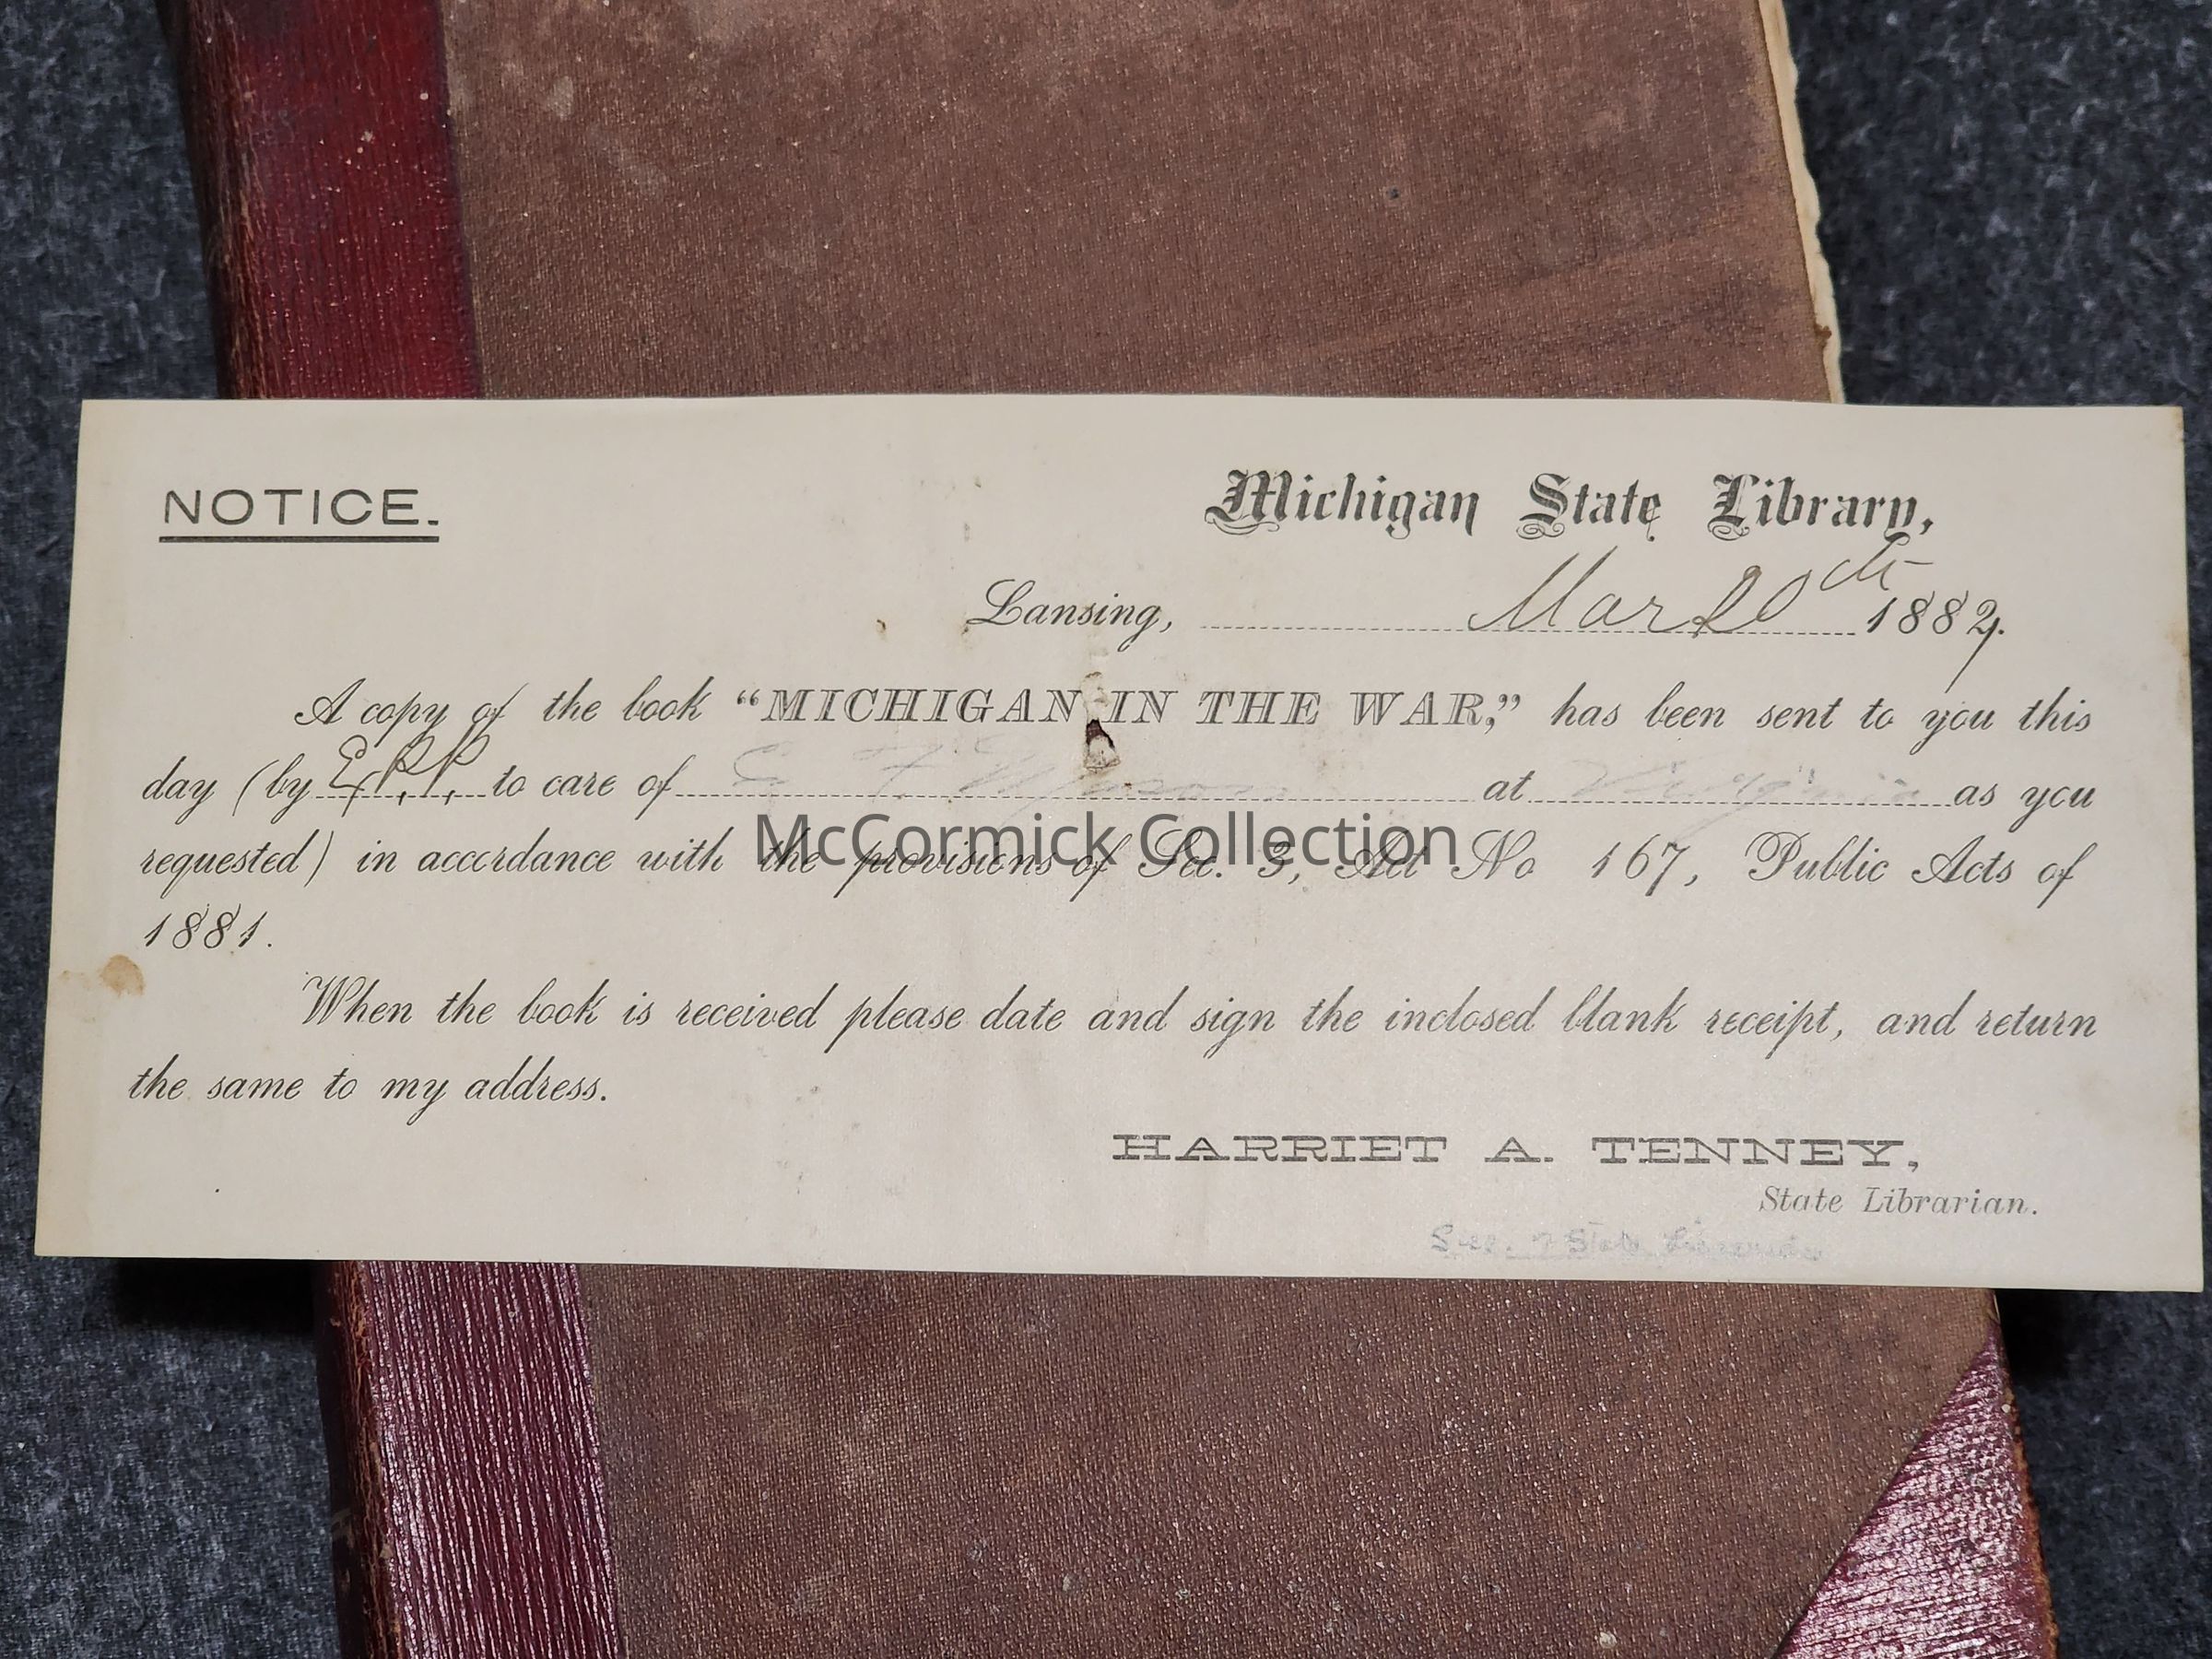 NOTICE.
Michigan State Library,
Lansing, Mar 20th 1882.
A copy of the book “MICHIGAN IN THE WAR,” has been sent to you this
day (by to care of at as you
requested) in accordance with the provisions of Sec. 3, Act No 167, Public Acts of
1881.
When the book is received please date and sign the inclosed blank receipt, and return
the same to my address.
HARRIET A. TENNEY,
State Librarian.
McCormick Collection